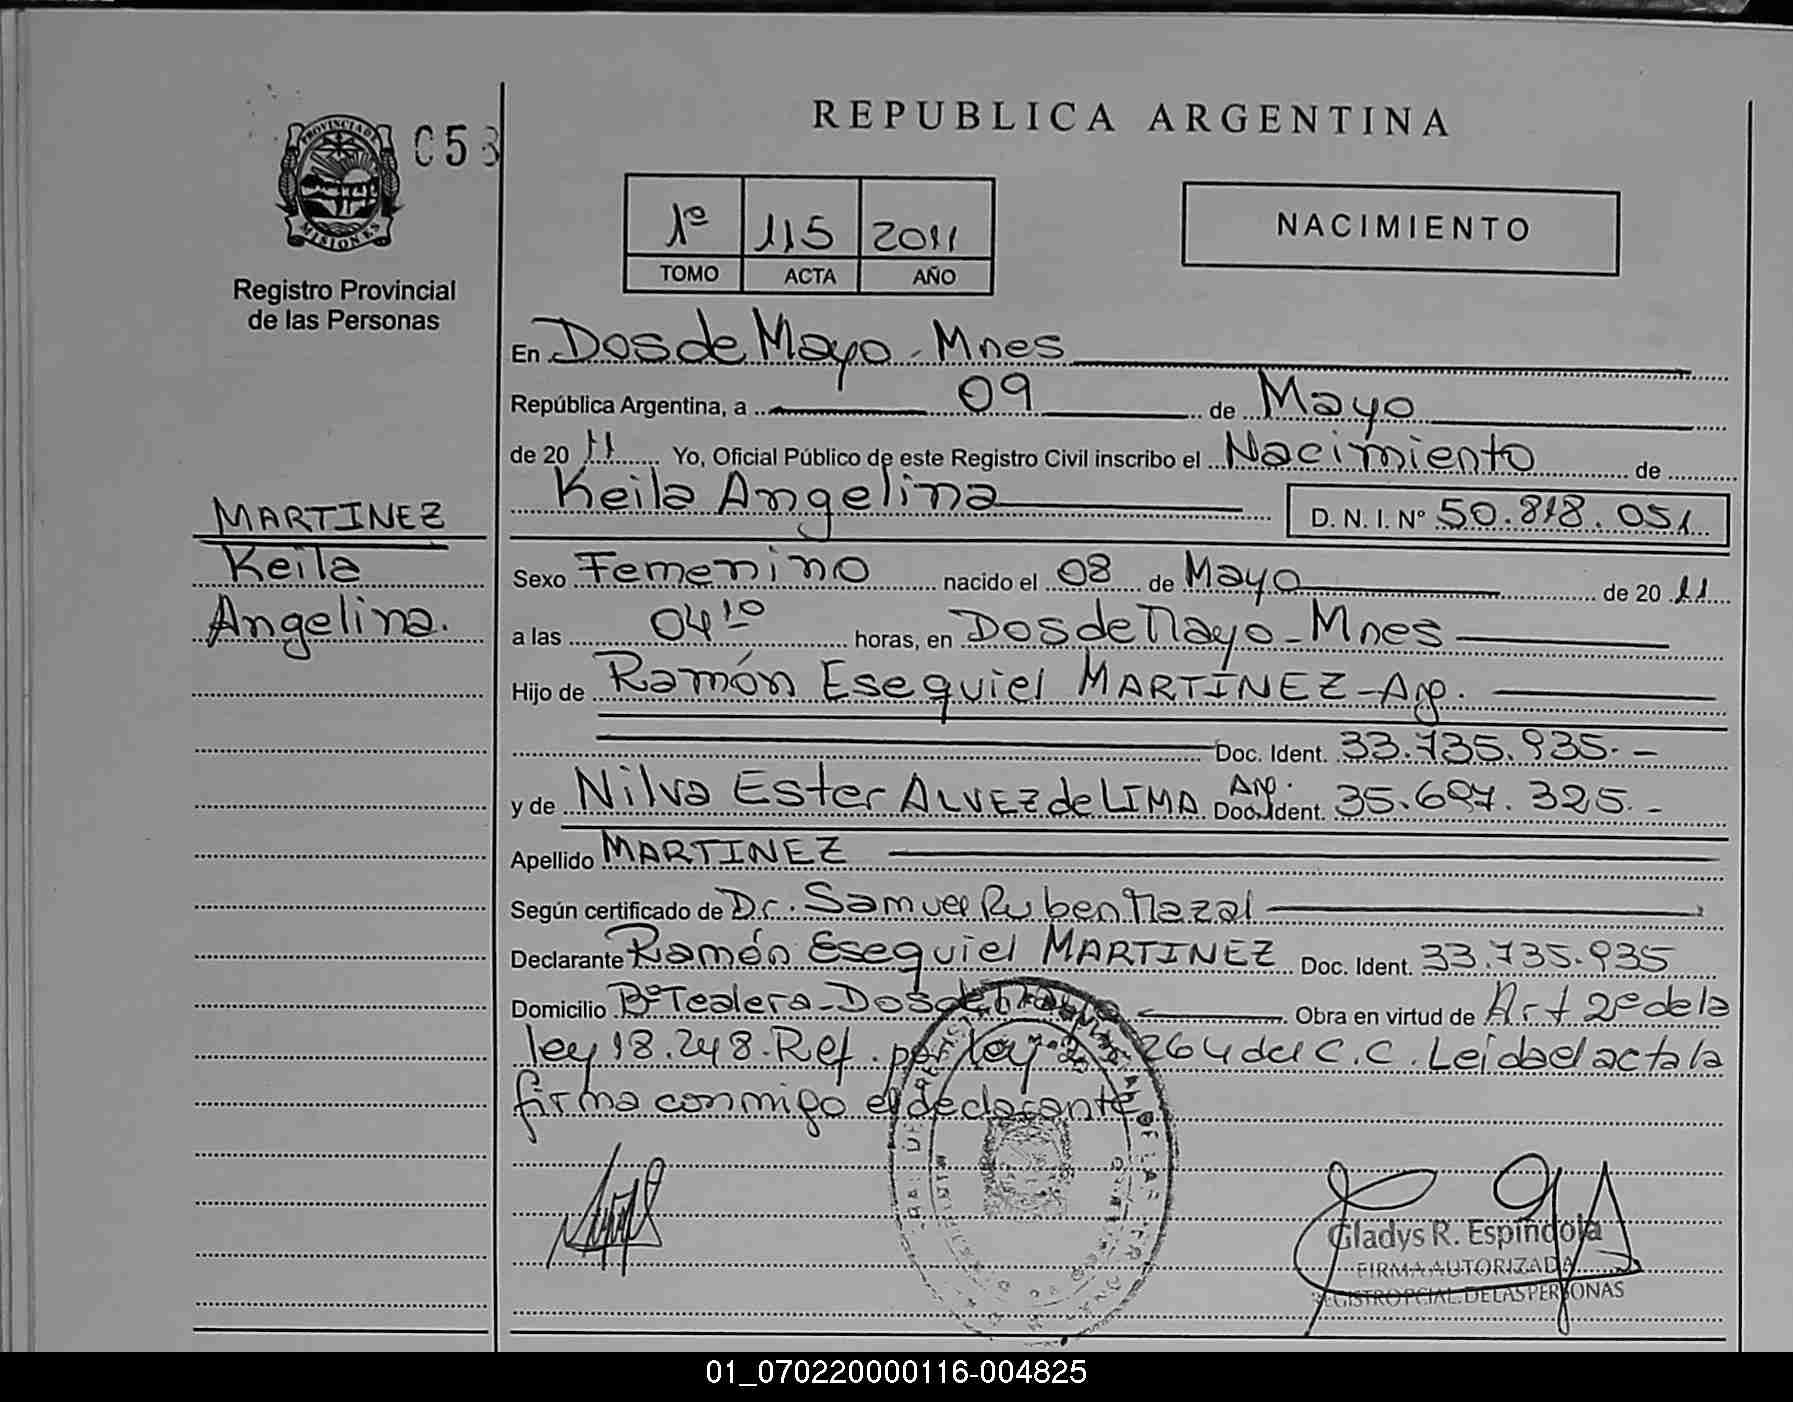 REPUBLICA ARGENTINA
PROVINCIA DE
MISIONES
C53
Registro Provincial
de las Personas
1º 115 2011
TOMO ACTA AÑO
NACIMIENTO
En Dos de Mayo - Mnes
República Argentina, a 09 de Mayo
de 20 11 Yo, Oficial Público de este Registro Civil inscribo el Nacimiento de
Keila Angelina D. N. I. Nº 50.818.051
MARTINEZ
Keila
Angelina.
Sexo Femenino nacido el 08 de Mayo de 20 11
a las 04 10 horas, en Dos de Mayo - Mnes
Hijo de Ramón Esequiel MARTINEZ - Arg.
Doc. Ident. 33.735.935.-
y de Nilva Ester ALVEZ de LIMA Arg. Doc. Ident. 35.697.325.-
Apellido MARTINEZ
Según certificado de Dr. Samuel Ruben Nazal
Declarante Ramón Esequiel MARTINEZ Doc. Ident. 33.735.935
Domicilio Bº Tealera - Dos de Mayo Obra en virtud de Art 2º de la
ley 18.248. Ref. por ley 264 del C.C. Leida el acta la
firma conmigo el declarante.
Gladys R. Espíndola
FIRMA AUTORIZADA
REGISTRO PCIAL. DE LAS PERSONAS
01_070220000116-004825